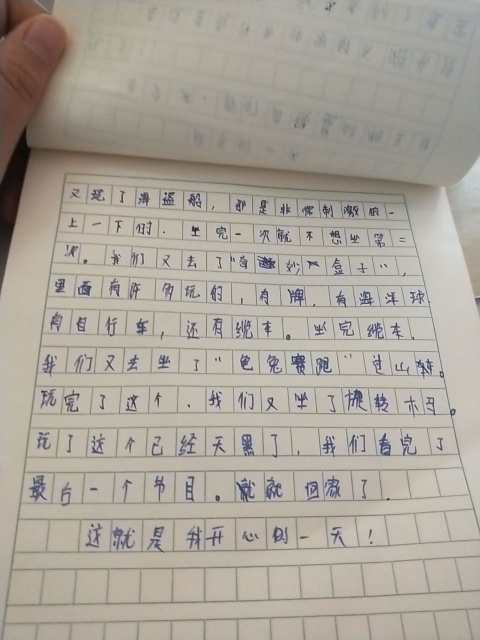 又玩了海盗船，那是非常刺激的一
上一下的．坐完一次就不想坐第二
次。我们又去了"奇妙盒子"，
里面有许多玩的，有牌．有海洋球
有自行车，还有缆车。坐完缆车．
我们又去坐了"龟兔赛跑"过山车。
玩完了这个．我们又坐了旋转木马。
玩了这个已经天黑了．我们看完了
最后一个节目。就回家了．
这就是我开心的一天！